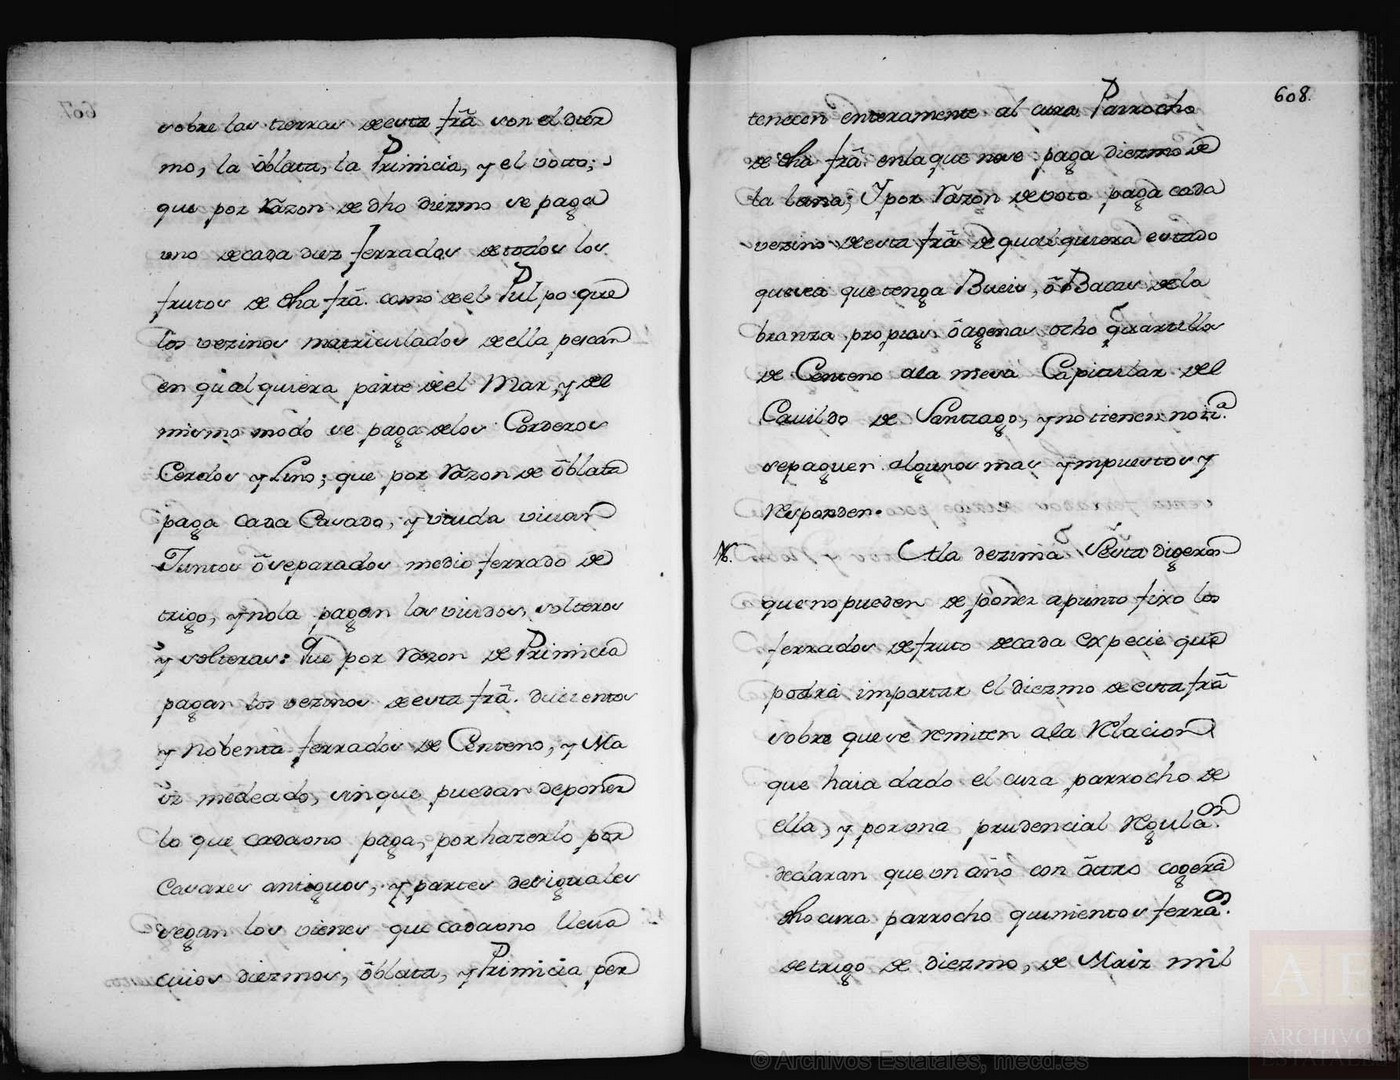 sobre las tierras de esta frã son el diez
mo, la õblata, la Primicia, y el voto;
que por Razon de dho diezmo se paga
uno de cada diez ferrados de todos los
frutos de dha frã. como de el Pulpo que
los vezinos matriculados de ella pescan
en qualquiera parte de el Mar, y del
mismo modo se paga de los Corderos
Cerdos y Lino; que por Razon de õblata
paga cada Casado, y viuda vivan
Juntos õ separados medio ferrado de
trigo, y no la pagan los viudos, solteros
y solteras: Que por Razon de Primicia
pagan los vezinos de esta frã. ducientos
y nobenta ferrados de Centeno, y Ma
iz mediado, sin que puedan deponer
lo que cada uno paga, por hazerlo por
Casares antiguos, y partes desiguales
segun los vienes que cada uno lleva
cuios diezmos, õblata, y Primicia per
608.
tenecen enteramente al cura Parrocho
de dha frã. en la que no se paga diezmo de
la lana; Y por Razon de voto paga cada
vezino de esta frã de qualquiera estado
que sea que tenga Bueis, õ Bacas de la
branza propias õ agenas ocho quartillos
de Centeno a la mesa Capitular del
Cavildo de Santiago, y no tienen notiª.
se paguen algunos mas ympuestos y
Responden.
16. A la dezima Sesta digeron
que no pueden deponer a punto fixo los
ferrados de fruto de cada expecie que
podrá importar el diezmo de esta frã
sobre que se remiten a la Relacion
que haia dado el cura parrocho de
ella, y por una prudencial Regulaon.
declaran que un año con õtro cogerá
dho cura parrocho quinientos ferraos.
de trigo de diezmo, de Maiz mil
© Archivos Estatales, mecd.es
AE
ARCHIVOS
ESTATALES